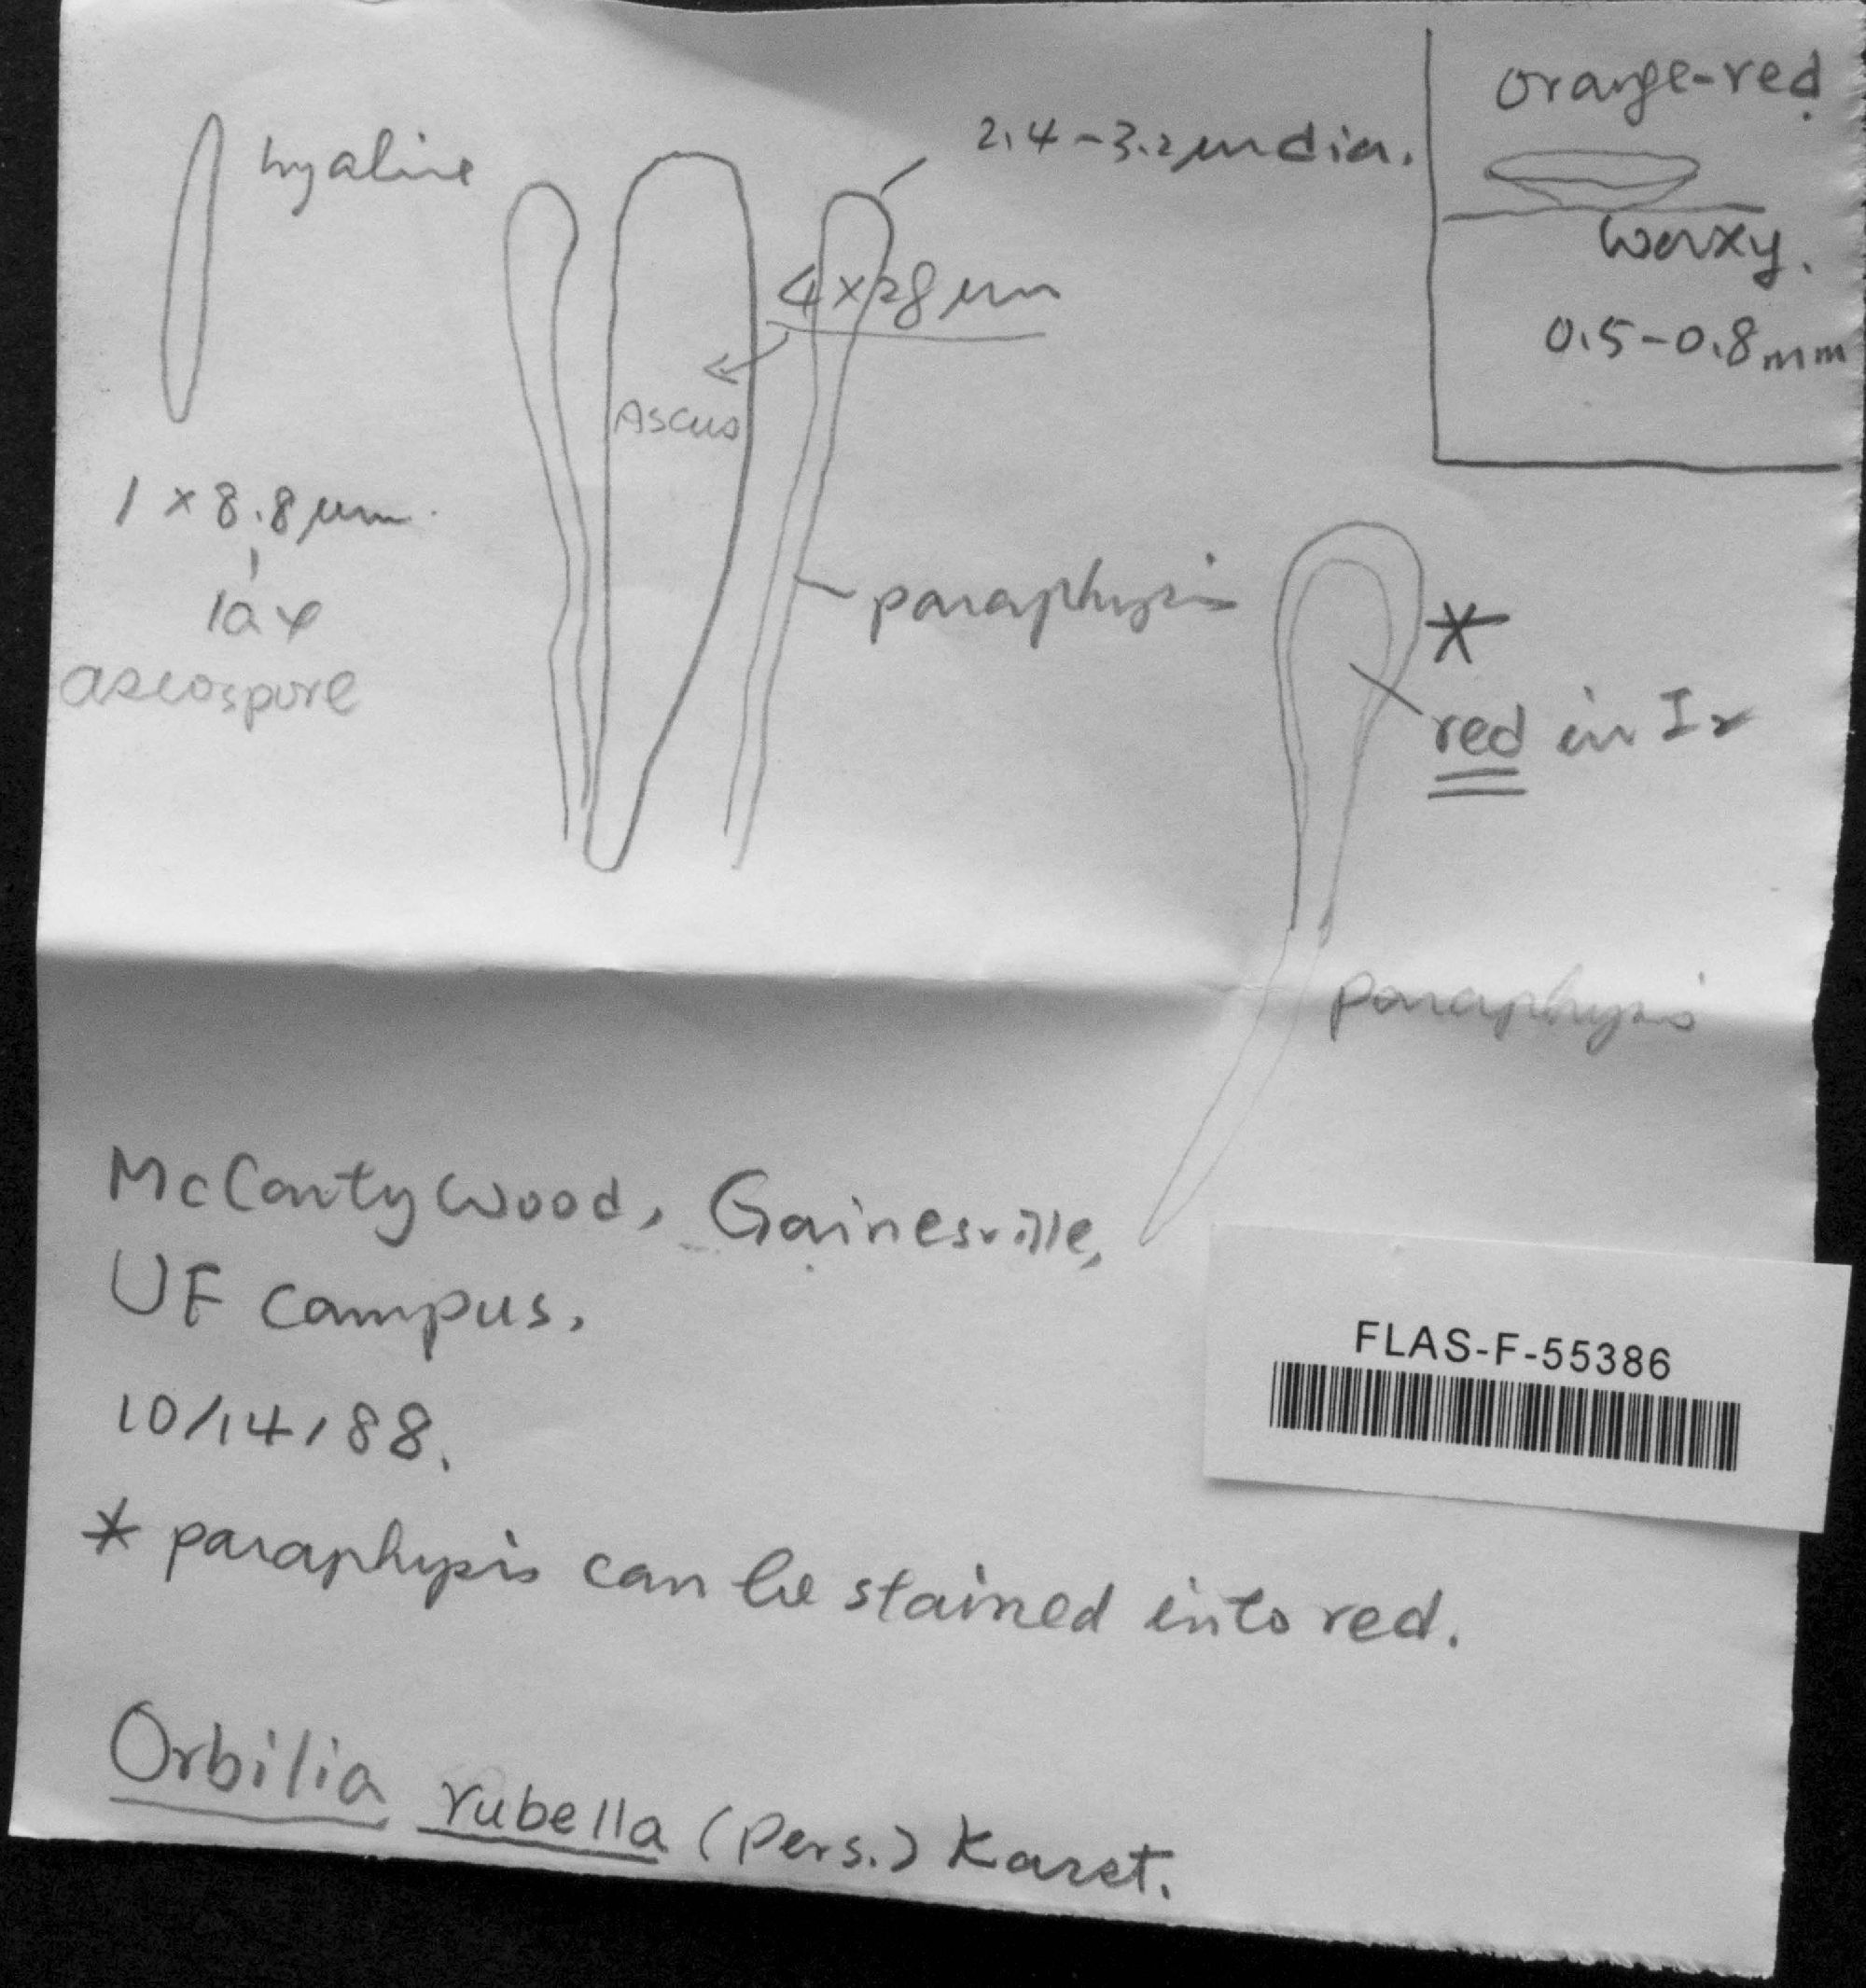 orange-red
waxy.
0.5-0.8mm
hyaline
2.4-3.2μm dia.
4×28μm
Ascus
1 × 8.8μm.
ascospore
paraphysis
*
red in I2
paraphysis
McCarty Wood, Gainesville,
UF campus.
10/14/88.
FLAS-F-55386
* paraphysis can be stained into red.
Orbilia rubella (Pers.) Karst.